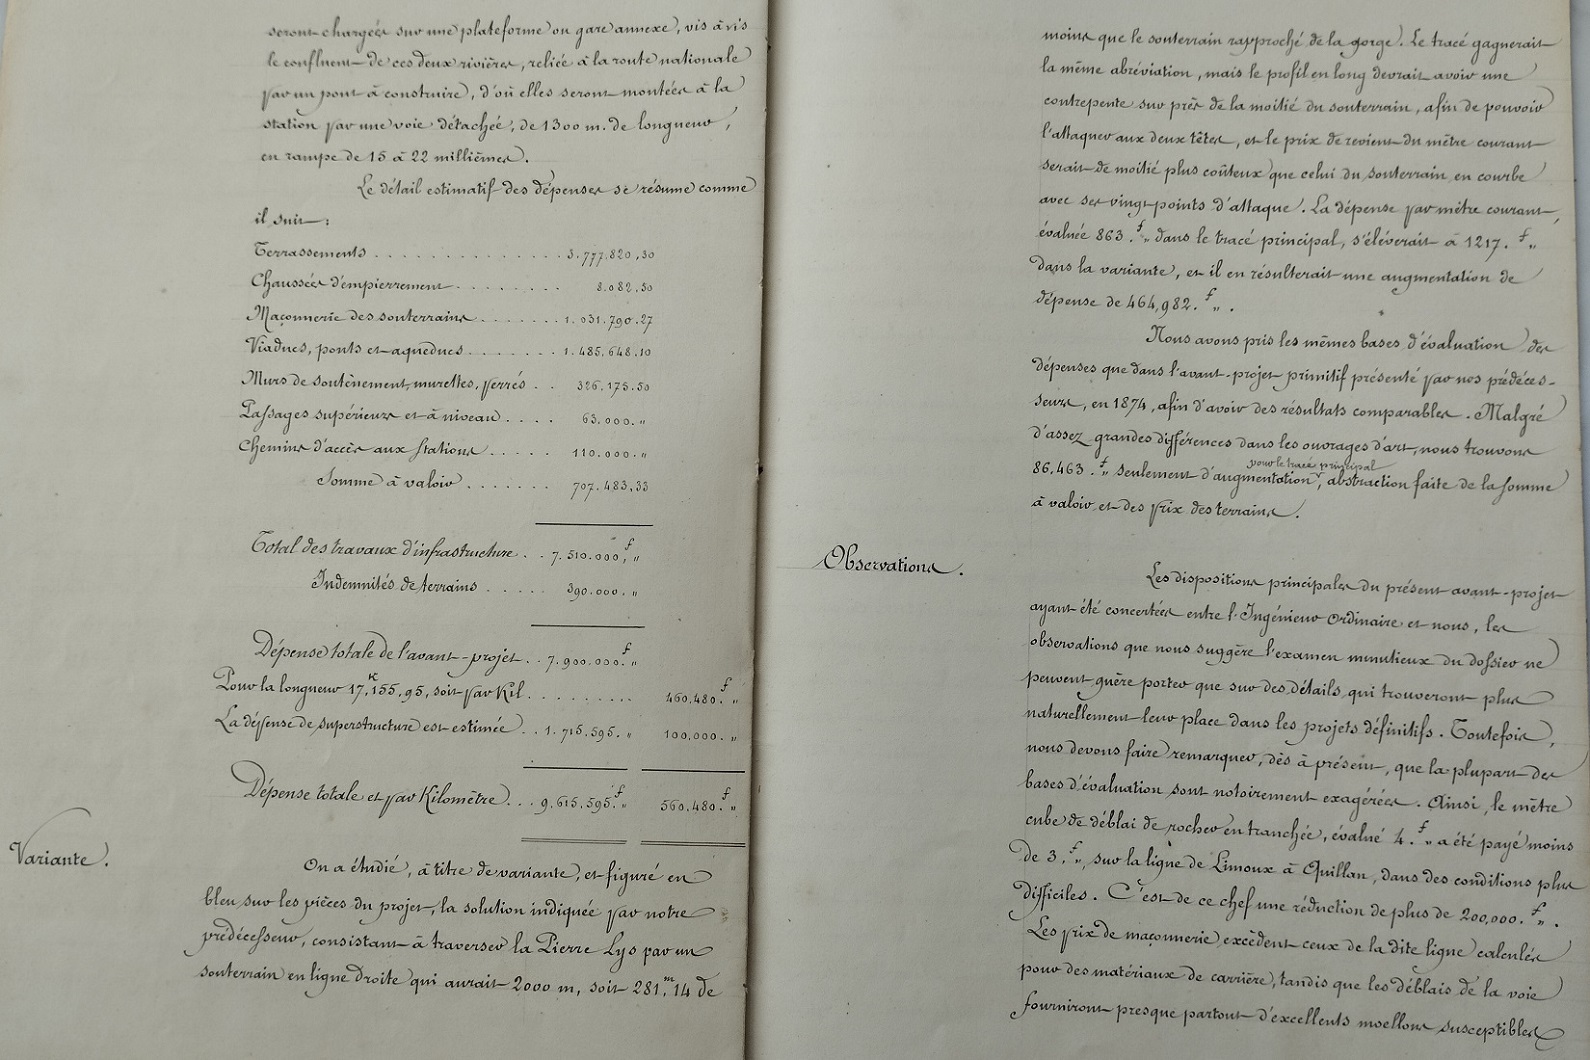 seront chargées sur une plateforme ou gare annexe, vis à vis
le confluent de ces deux rivières, reliée à la route nationale
par un pont à construire, d'où elles seront montées à la
station par une voie détachée, de 1300 m. de longueur,
en rampe de 15 à 22 millièmes.
Le détail estimatif des dépenses se résume comme
il suit :
Terrassements . . . . . . . . . . . . . . 3.777.820,30
Chaussées d'empierrement . . . . . . . . 8.082,50
Maçonnerie des souterrains . . . . . . . 1.031.790.27
Viaducs, ponts et aqueducs . . . . . . . 1.485.648.10
Murs de soutènement, murettes, perrés . . 326.175.50
Passages supérieurs et à niveau . . . . 63.000. "
Chemins d'accès aux stations . . . . . 110.000. "
Somme à valoir . . . . . . . 707.483,33
Total des travaux d'infrastructure . . 7.510.000,f "
Indemnités de terrains . . . . . 390.000. "
Dépense totale de l'avant-projet . . 7.900.000.f "
Pour la longueur 17,K155,95, soit par Kil . . . . . . . . 460.480.f "
La dépense de superstructure est estimée . . 1.715.595. " 100,000. "
Dépense totale et par Kilomètre . . . 9.615.595.f " 560.480.f "
Variante.
On a étudié, à titre de variante, et figuré en
bleu sur les pièces du projet, la solution indiquée par notre
prédécesseur, consistant à traverser la Pierre Lys par un
souterrain en ligne droite qui aurait 2000 m, soit 281,m14 de
moins que le souterrain rapproché de la gorge. Le tracé gagnerait
la même abréviation, mais le profil en long devrait avoir une
contrepente sur près de la moitié du souterrain, afin de pouvoir
l'attaquer aux deux têtes, et le prix de revient du mètre courant
serait de moitié plus coûteux que celui du souterrain en courbe
avec ses vingt points d'attaque. La dépense par mètre courant,
évaluée 863.f " dans le tracé principal, s'élèverait à 1217.f "
dans la variante, et il en résulterait une augmentation de
dépense de 464,982.f " .
Nous avons pris les mêmes bases d'évaluation des
dépenses que dans l'avant-projet primitif présenté par nos prédéces-
seurs, en 1874, afin d'avoir des résultats comparables. Malgré
d'assez grandes différences dans les ouvrages d'art, nous trouvons
pour le tracé principal
86,463.f " seulement d'augmentation, abstraction faite de la somme
à valoir et des prix des terrains.
Observations.
Les dispositions principales du présent avant-projet
ayant été concertées entre l'Ingénieur Ordinaire et nous, les
observations que nous suggère l'examen minutieux du dossier ne
peuvent guère porter que sur des détails, qui trouveront plus
naturellement leur place dans les projets définitifs. Toutefois,
nous devons faire remarquer, dès à présent, que la plupart des
bases d'évaluation sont notoirement exagérées. Ainsi, le mètre
cube de déblai de rocher en tranchée, évalué 4.f " a été payé moins
de 3.f ", sur la ligne de Limoux à Quillan, dans des conditions plus
difficiles. C'est de ce chef une réduction de plus de 200,000.f " .
Les prix de maçonnerie excèdent ceux de la dite ligne calculés
pour des matériaux de carrière, tandis que les déblais de la voie
fourniront presque partout d'excellents moellons susceptibles